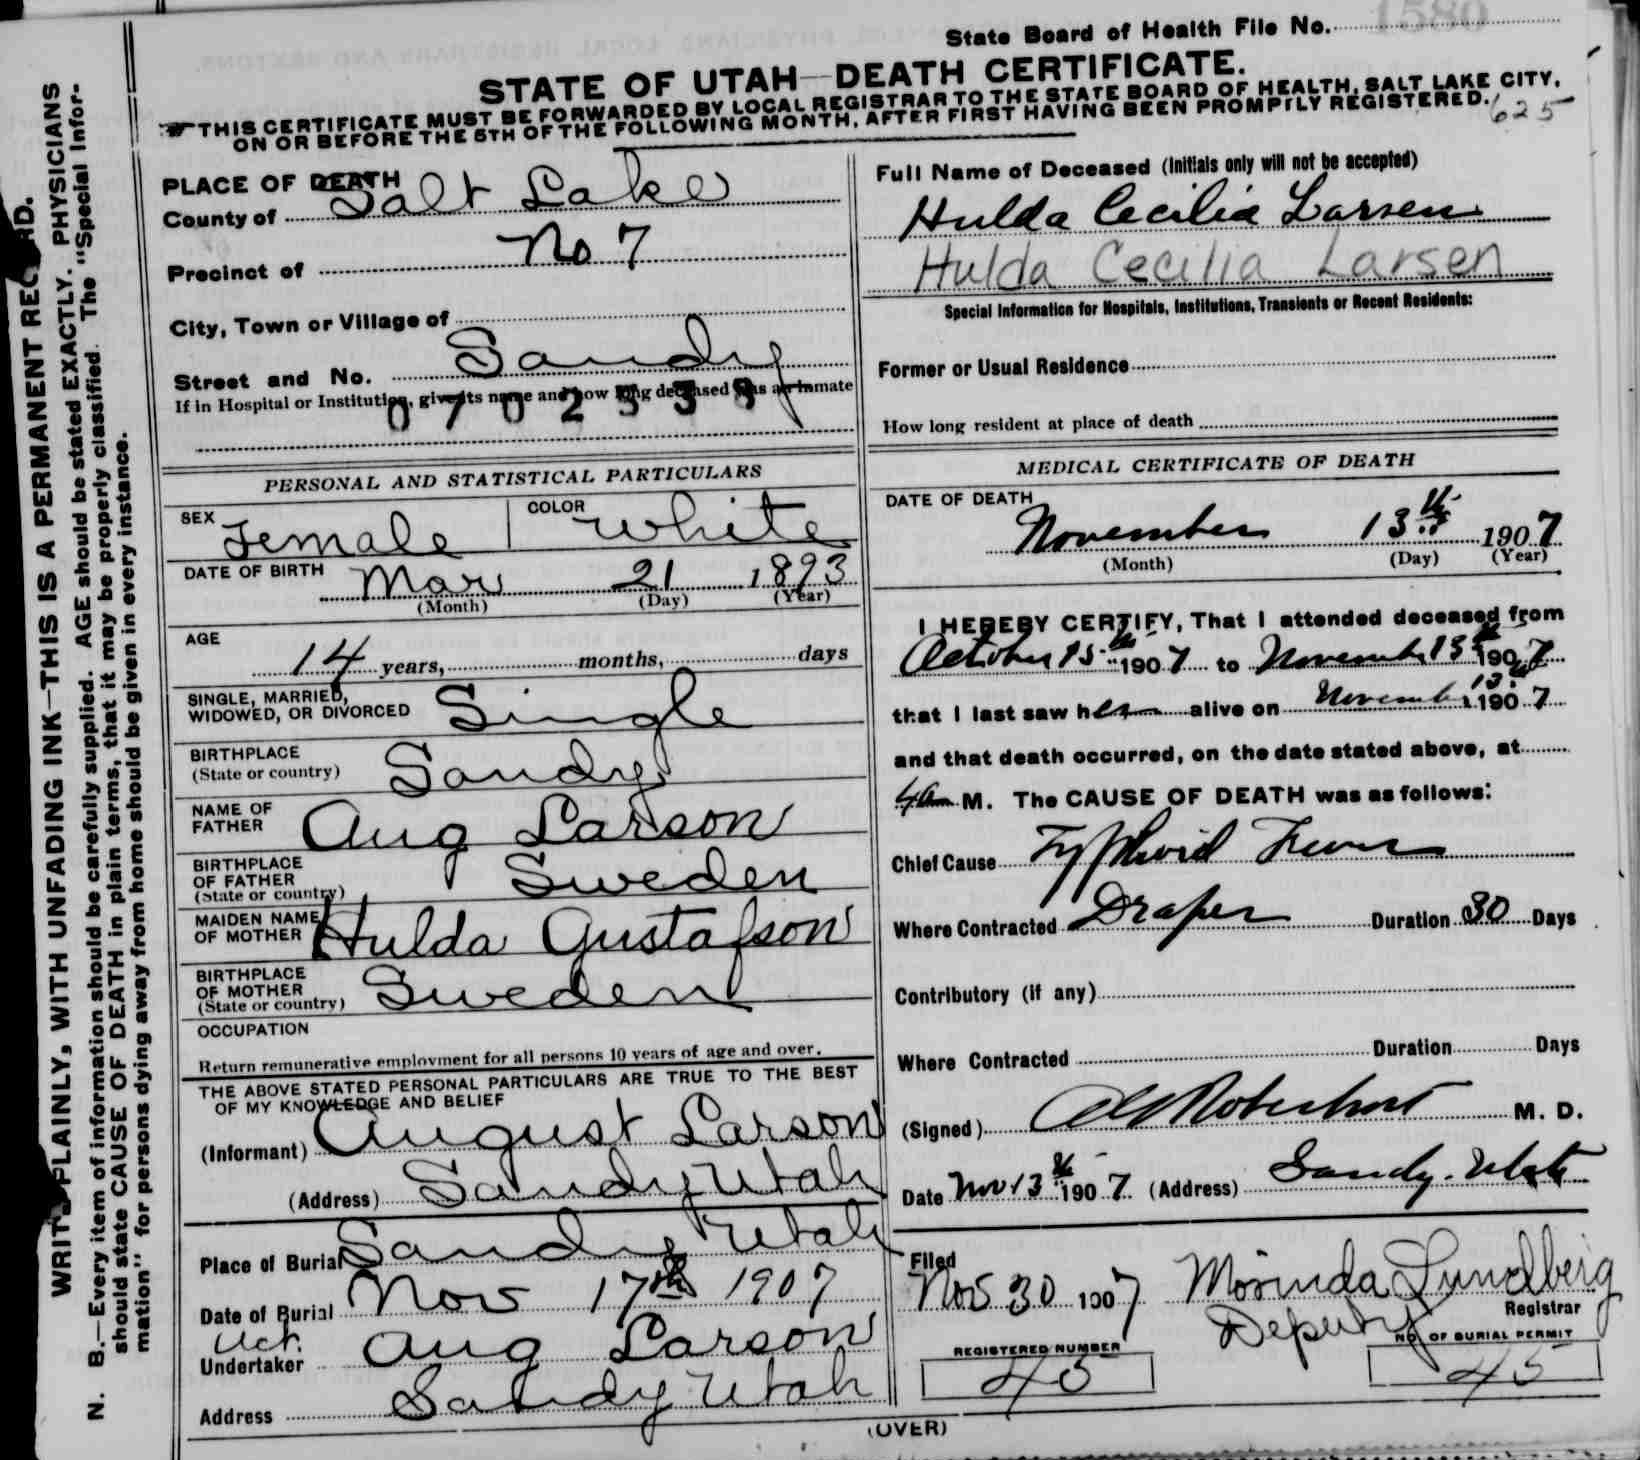 1580
State Board of Health File No.
STATE OF UTAH—DEATH CERTIFICATE.
THIS CERTIFICATE MUST BE FORWARDED BY LOCAL REGISTRAR TO THE STATE BOARD OF HEALTH, SALT LAKE CITY,
ON OR BEFORE THE 5TH OF THE FOLLOWING MONTH, AFTER FIRST HAVING BEEN PROMPTLY REGISTERED.
625
WRITE PLAINLY, WITH UNFADING INK—THIS IS A PERMANENT RECORD.
N. B.—Every item of information should be carefully supplied. AGE should be stated EXACTLY. PHYSICIANS
should state CAUSE OF DEATH in plain terms, that it may be properly classified. The "Special Infor-
mation" for persons dying away from home should be given in every instance.
PLACE OF DEATH
County of Salt Lake
Precinct of No 7
City, Town or Village of
Street and No. Sandy
If in Hospital or Institution, give its name and how long deceased was an inmate
0702339
PERSONAL AND STATISTICAL PARTICULARS
SEX Female COLOR White
DATE OF BIRTH Mar 21 1893
(Month) (Day) (Year)
AGE
14 years, months, days
SINGLE, MARRIED,
WIDOWED, OR DIVORCED Single
BIRTHPLACE
(State or country) Sandy
NAME OF
FATHER Aug Larson
BIRTHPLACE
OF FATHER
(State or country) Sweden
MAIDEN NAME
OF MOTHER Hulda Gustafson
BIRTHPLACE
OF MOTHER
(State or country) Sweden
OCCUPATION
Return remunerative employment for all persons 10 years of age and over.
THE ABOVE STATED PERSONAL PARTICULARS ARE TRUE TO THE BEST
OF MY KNOWLEDGE AND BELIEF
(Informant) August Larson
(Address) Sandy Utah
Place of Burial Sandy Utah
Date of Burial Nov 17th 1907
Act.
Undertaker Aug Larson
Address Sandy Utah
Full Name of Deceased (Initials only will not be accepted)
Hulda Cecilia Larsen
Hulda Cecilia Larsen
Special Information for Hospitals, Institutions, Transients or Recent Residents:
Former or Usual Residence
How long resident at place of death
MEDICAL CERTIFICATE OF DEATH
DATE OF DEATH
November 13th 1907
(Month) (Day) (Year)
I HEREBY CERTIFY, That I attended deceased from
October 15th 1907 to November 13th 1907
that I last saw her alive on November 13th 1907
and that death occurred, on the date stated above, at
4am M. The CAUSE OF DEATH was as follows:
Chief Cause Typhoid Fever
Where Contracted Draper Duration 30 Days
Contributory (if any)
Where Contracted Duration Days
(Signed) Robertson M. D.
Date Nov 13th 1907 (Address) Sandy. Utah
Filed
Nov 30 1907 Morinda Lundberg
Registrar
Deputy
REGISTERED NUMBER
45
NO. OF BURIAL PERMIT
45
(OVER)